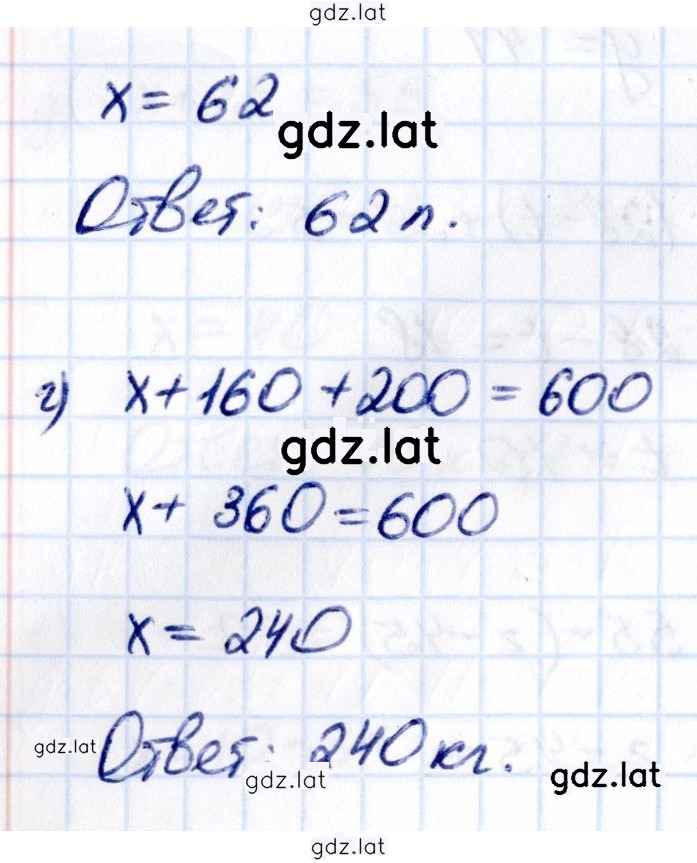 gdz.lat
x = 62
gdz.lat
Ответ: 62 л.
г) x + 160 + 200 = 600
gdz.lat
x + 360 = 600
x = 240
gdz.lat Ответ: 240 кг.
gdz.lat gdz.lat
gdz.lat